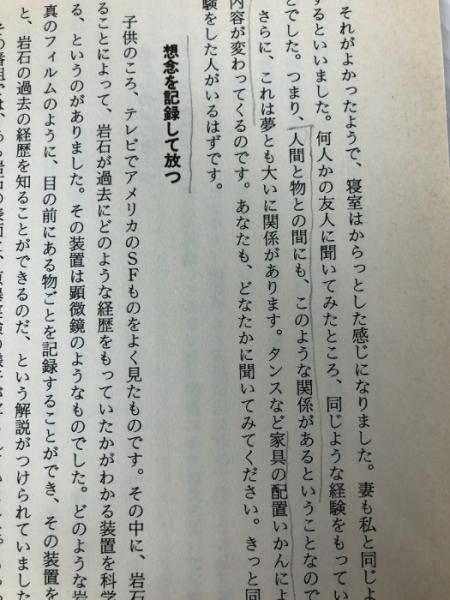 それがよかったようで、寝室はからっとした感じになりました。妻も私と同じよ
するといいました。何人かの友人に聞いてみたところ、同じような経験をもってい
とでした。つまり、人間と物との間にも、このような関係があるということなので
さらに、これは夢とも大いに関係があります。タンスなど家具の配置いかんによ
内容が変わってくるのです。あなたも、どなたかに聞いてみてください。きっと同
験をした人がいるはずです。
想念を記録して放つ
子供のころ、テレビでアメリカのSFものをよく見たものです。その中に、岩石
ることによって、岩石が過去にどのような経歴をもっていたかがわかる装置を科学
る、というのがありました。その装置は顕微鏡のようなものでした。どのような岩
真のフィルムのように、目の前にある物ごとを記録することができ、その装置を
と、岩石の過去の経歴を知ることができるのだ、という解説がつけられていました